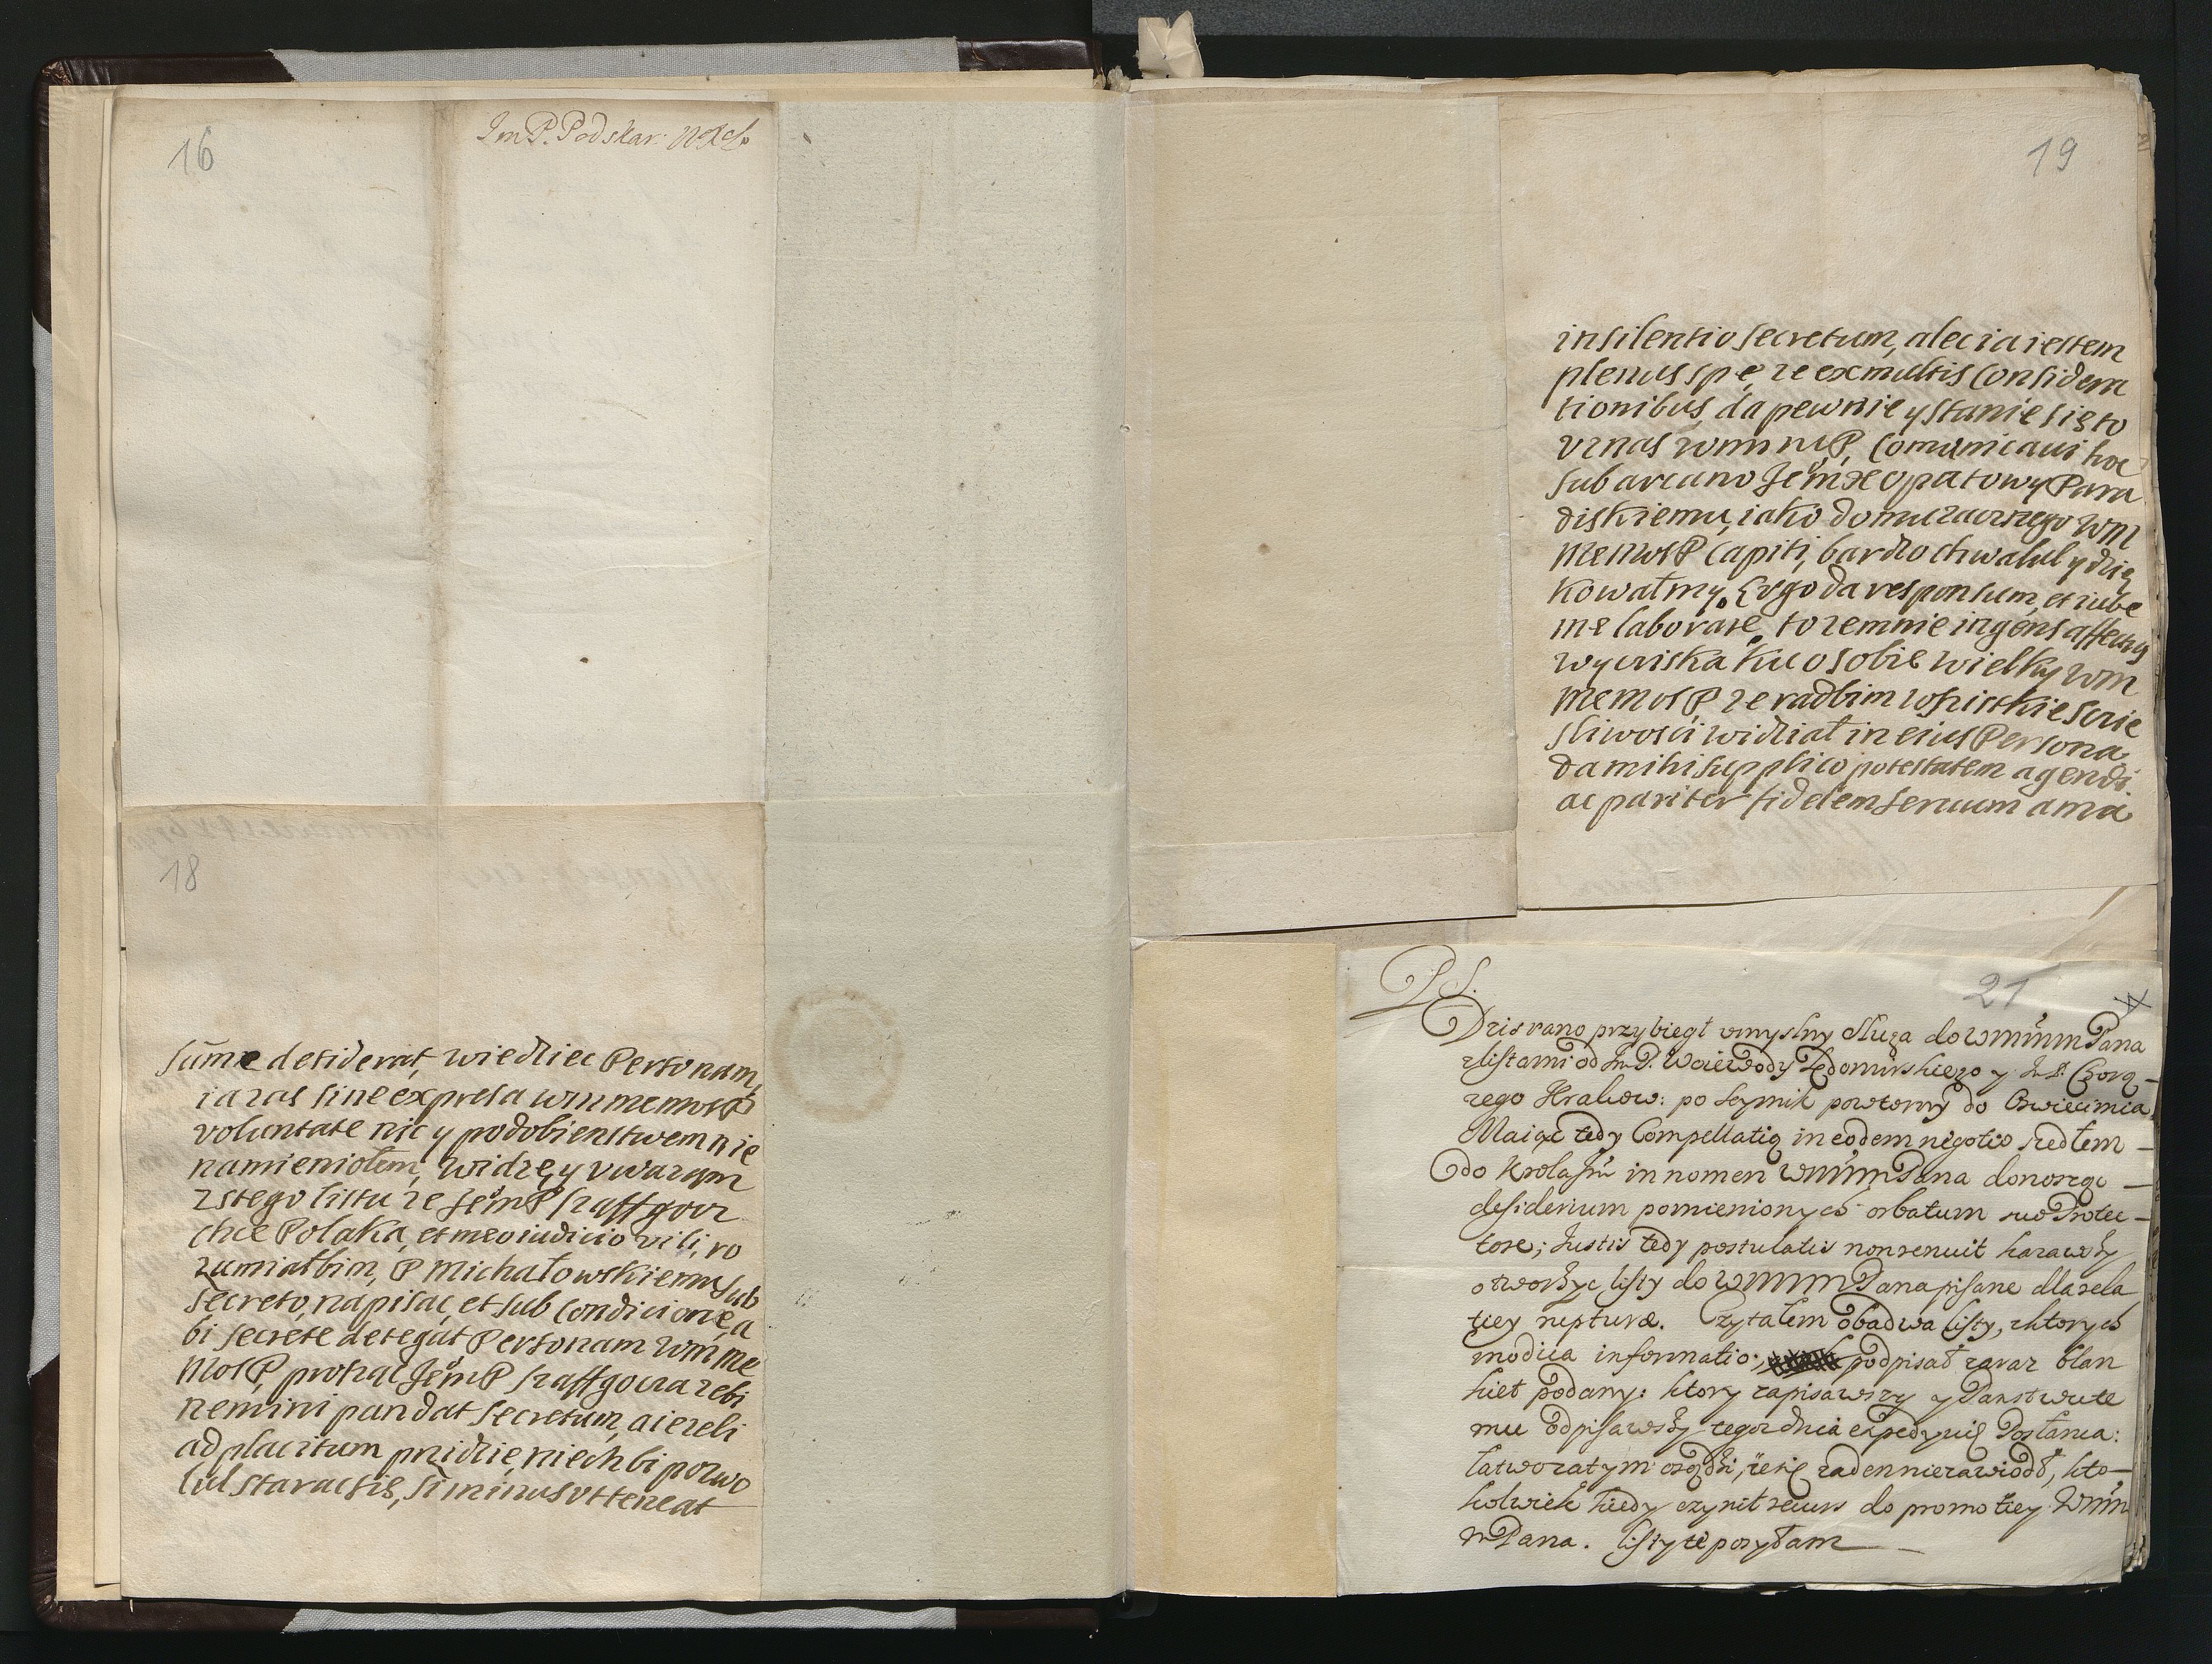 16
Im P. Podskar: WXL
18
sume desiderat, wiedziec Personam,
ia zas sine expresa wm memosP
voluntate nic y podobienstwem nie
namieniołem, widzę, y vwazam
z stego listu ze JemP szaffgocz
chce Polaka, et meo iudicio vili, ro
zumiałbim, P Michałowskiemu sub
secreto, napisac, et sub condicione, a
bi secrete detegat Personam wm me
MosP, prosząc JemP szaffgocza zebi
nemini pandat secretum, a iezeli
ad placitum pridzie, niechbi pozwo
lul staractsię, si minus vt teneat
19
in silentio secretum, alec ia iestem
plenus spe, ze ex multis considera
tionibus, da pewnie y stanie się to
v nas wm mP, Comunicaui hoc
sub arcano Jem X opatowy Para
diskiemu, iako domu zacnego wm
MeMosP capiti, bardzo chwalul y dzię
kował my, Ergo da responsum, et iube
me laborare, to ze mnie ingens affectus
wyciska ku osobie wielky wm
MeMosP ze radbim wszistkie sczie
sliwosci widział in eius Persona
da mihi supplico potestatem agendi
ac pariter fidelem seruum ama
21
4
P S.
Dzis rano przybiegł vmyslny Sługa do WMMM Pana
z listami od Jm P. Woiewody Sędomirskiego y J P. Chorą-
zego Krakow: po Seymik powtorny do Oswiecimia,
Maiąc tedy Compellatią in eodem negotio szedłem-
do Krola Jm in nomen WMMM Pana donosząc-
desiderium pomienionych orbatum suo Protec-
tore; Justis tedy postulatis non renuit kazawszy
otworzyc listy do WMMM Pana pisane dla rela
tiey rupturæ. Czytałem obadwa listy, z ktorych
modica informatio, podpisał zaraz blan
kiet podany: ktory zapisawszy y Panstwu te
mu odpisawszy tegoz dnia expedyuię Posłanca:
łatwo zatym osądzi, ze się zaden nie zawiodł, kto-
kolwiek kiedy czynił recurs do promotiey WMM
M Pana. listy te posyłam